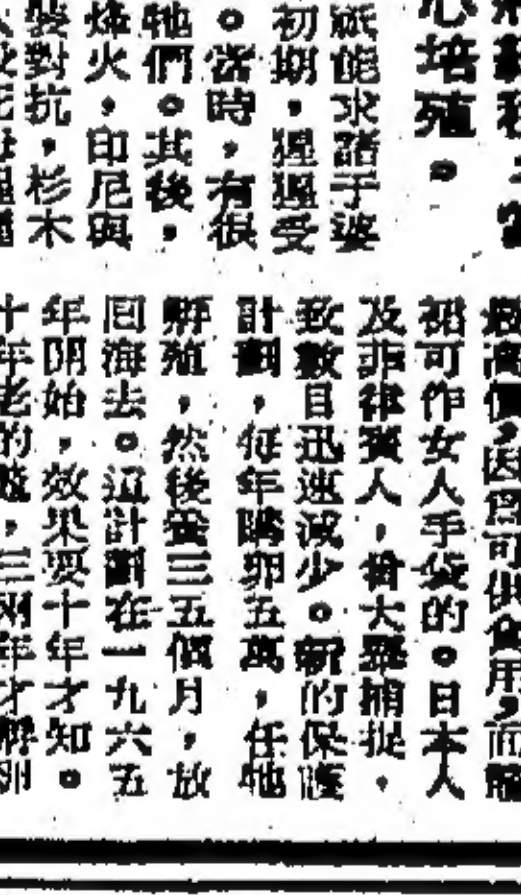 心培殖。
祇能求諸于婆
初期，猩猩受
。當時，有很
牠們。其後，
烽火，印尼與
裝對抗，杉木
最高價，因爲可供食用，而
裙可作女人手袋的。日本人
及非律賓人，曾大舉捕捉，
致數目迅速減少。新的保護
計劃，每年購卵五萬，任牠
孵殖，然後養三五個月，放
囘海去。這計劃在一九六五
年開始，效果要十年才知。
十年老的龜，三四年才